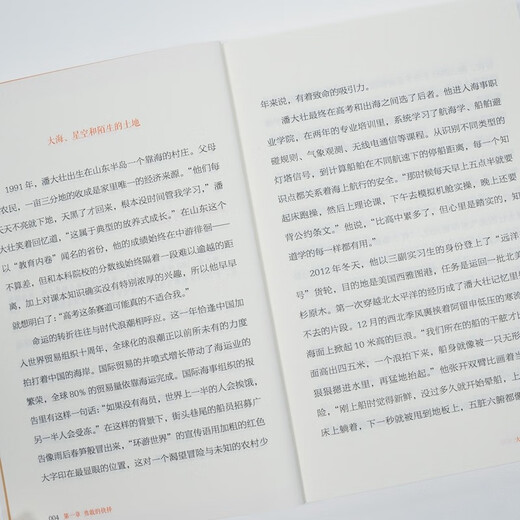 大海、星空和陌生的土地
1991 年，潘大壮出生在山东半岛一个靠海的村庄。父母
农民，一亩三分地的收成是家里唯一的经济来源。“他们每
天天不亮就下地，天黑了才回来，根本没时间管我学习，”潘
大壮笑着回忆道，“这属于典型的放养式成长。”在山东这个
以“教育内卷”闻名的省份，他的成绩始终在中游徘徊——
不算差，但和本科院校的分数线始终隔着一段难以逾越的距
离，加上对课本知识确实没有特别浓厚的兴趣，所以他早早
就想明白了：“高考这条赛道可能真的不适合我。”
命运的转折往往与时代浪潮相呼应。这一年恰逢中国加
入世界贸易组织十周年，全球化的浪潮正以前所未有的力度
拍打着中国的海岸。国际贸易的井喷式增长带动了海运业的
繁荣，全球 80% 的贸易量依靠海运完成。国际海事组织的报
告里有这样一句话：“如果没有海员，世界上一半的人会挨饿，
另一半人会受冻。”在这样的背景下，街头巷尾的船员招募广
告像雨后春笋般冒出来，“环游世界”的宣传语用加粗的红色
大字印在最显眼的位置，这对一个渴望冒险与未知的农村少
004 第一章
年来说，有着致命的吸引力。
潘大壮最终在高考和出海之间选了后者。他进入海事职
业学院，在两年的专业培训里，系统学习了航海学、船舶避
碰规则、气象观测、无线电通信等课程。从识别不同类型的
灯塔信号，到计算船舶在不同航速下的停船距离，每一个知
识点都关系着海上航行的安全。“那时候每天早上五点半就要
起床跑操，然后上理论课，下午去模拟机舱实操，晚上还要
背公约条文。”他说，“比高中累多了，但心里是踏实的，知
道学的每一样都有用。”
2012 年冬天，他以三副实习生的身份登上了“远洋
号”货轮，目的地是美国西雅图港，任务是运回一批北美
杉原木。第一次穿越北太平洋的经历成了潘大壮记忆里
不去的片段。12 月的西北季风裹挟着阿留申低压的寒流
海面上掀起 10 米高的巨浪。“我们所在的船的干舷才比
面高出四五米，一个浪拍下来，船身就像被一只无形
狠狠摁进水里，再猛地抬起。”他张开双臂比画着
险，“刚上船时觉得新鲜，没过多久就开始晕船，上
床上躺着，下一秒就被甩到地板上，五脏六腑都像